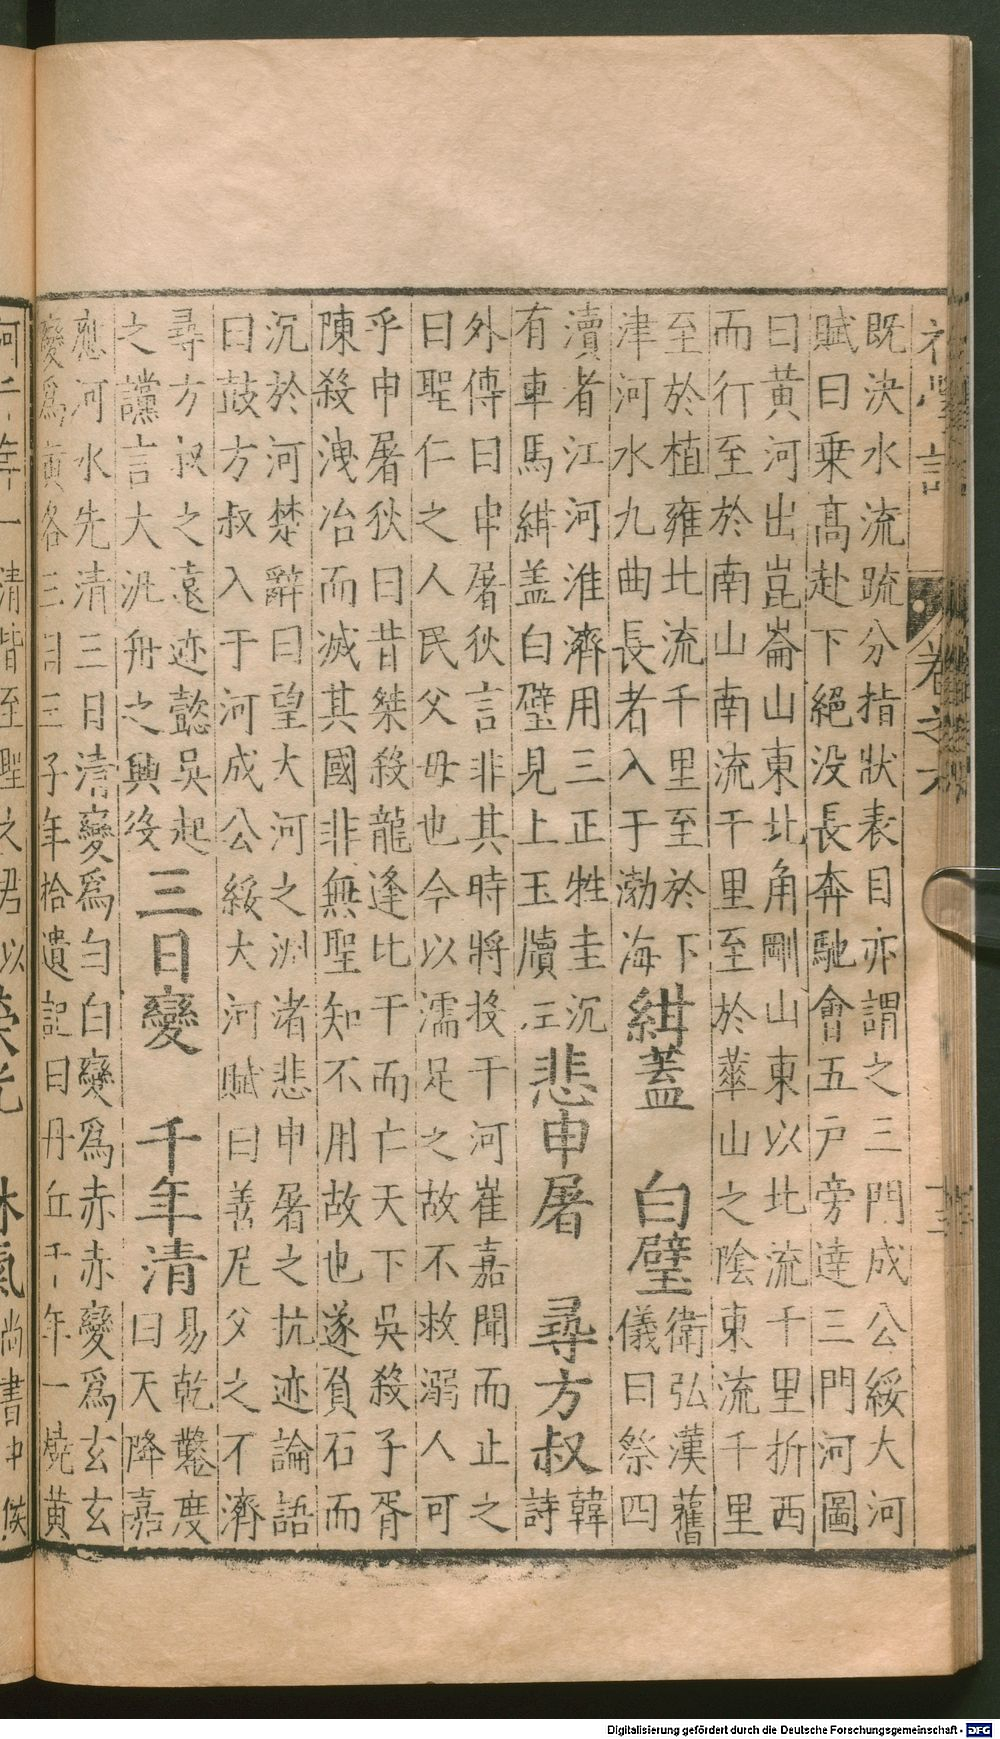 卷之六
既決水流疏分指狀表目亦謂之三門成公綏大河
賦曰乗高赴下絕没長奔馳會五戸旁達三門河圖
曰黄河出崑崙山東北角剛山東以北流千里折西
而行至於南山南流千里至於華山之陰東流千里
至於植雍北流千里至於下
津河水九曲長者入于渤海
紺蓋　白璧
衛弘漢舊
儀曰祭四
瀆者江河淮濟用三正牲圭沉
有車馬紺盖白璧見上玉牘
悲申屠　尋方叔
韓
詩
外傳曰申屠狄言非其時將投于河崔嘉聞而止之
曰聖仁之人民父母也今以濡足之故不救溺人可
乎申屠狄曰昔桀殺龍逢比干而亡天下吳殺子胥
陳殺洩冶而滅其國非無聖知不用故也遂負石而
沉於河楚辭曰望大河之洲渚悲申屠之抗迹論語
曰鼓方叔入于河成公綏大河賦曰善尼父之不濟
尋方叔之遠迹懿吳起
之讜言大汎舟之興後
三日變　千年清
易乾鑿度
曰天降嘉
應河水先清三日清變爲白白變爲赤赤變爲玄玄
變爲黄各三日王子年拾遺記曰丹丘千年一燒黄
河千年一清皆至聖之君以
榮光　休氣
尚書中候
Digitalisierung gefördert durch die Deutsche Forschungsgemeinschaft - DFG